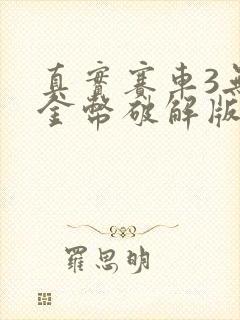 真實賽車3無
金幣破解版
羅思明